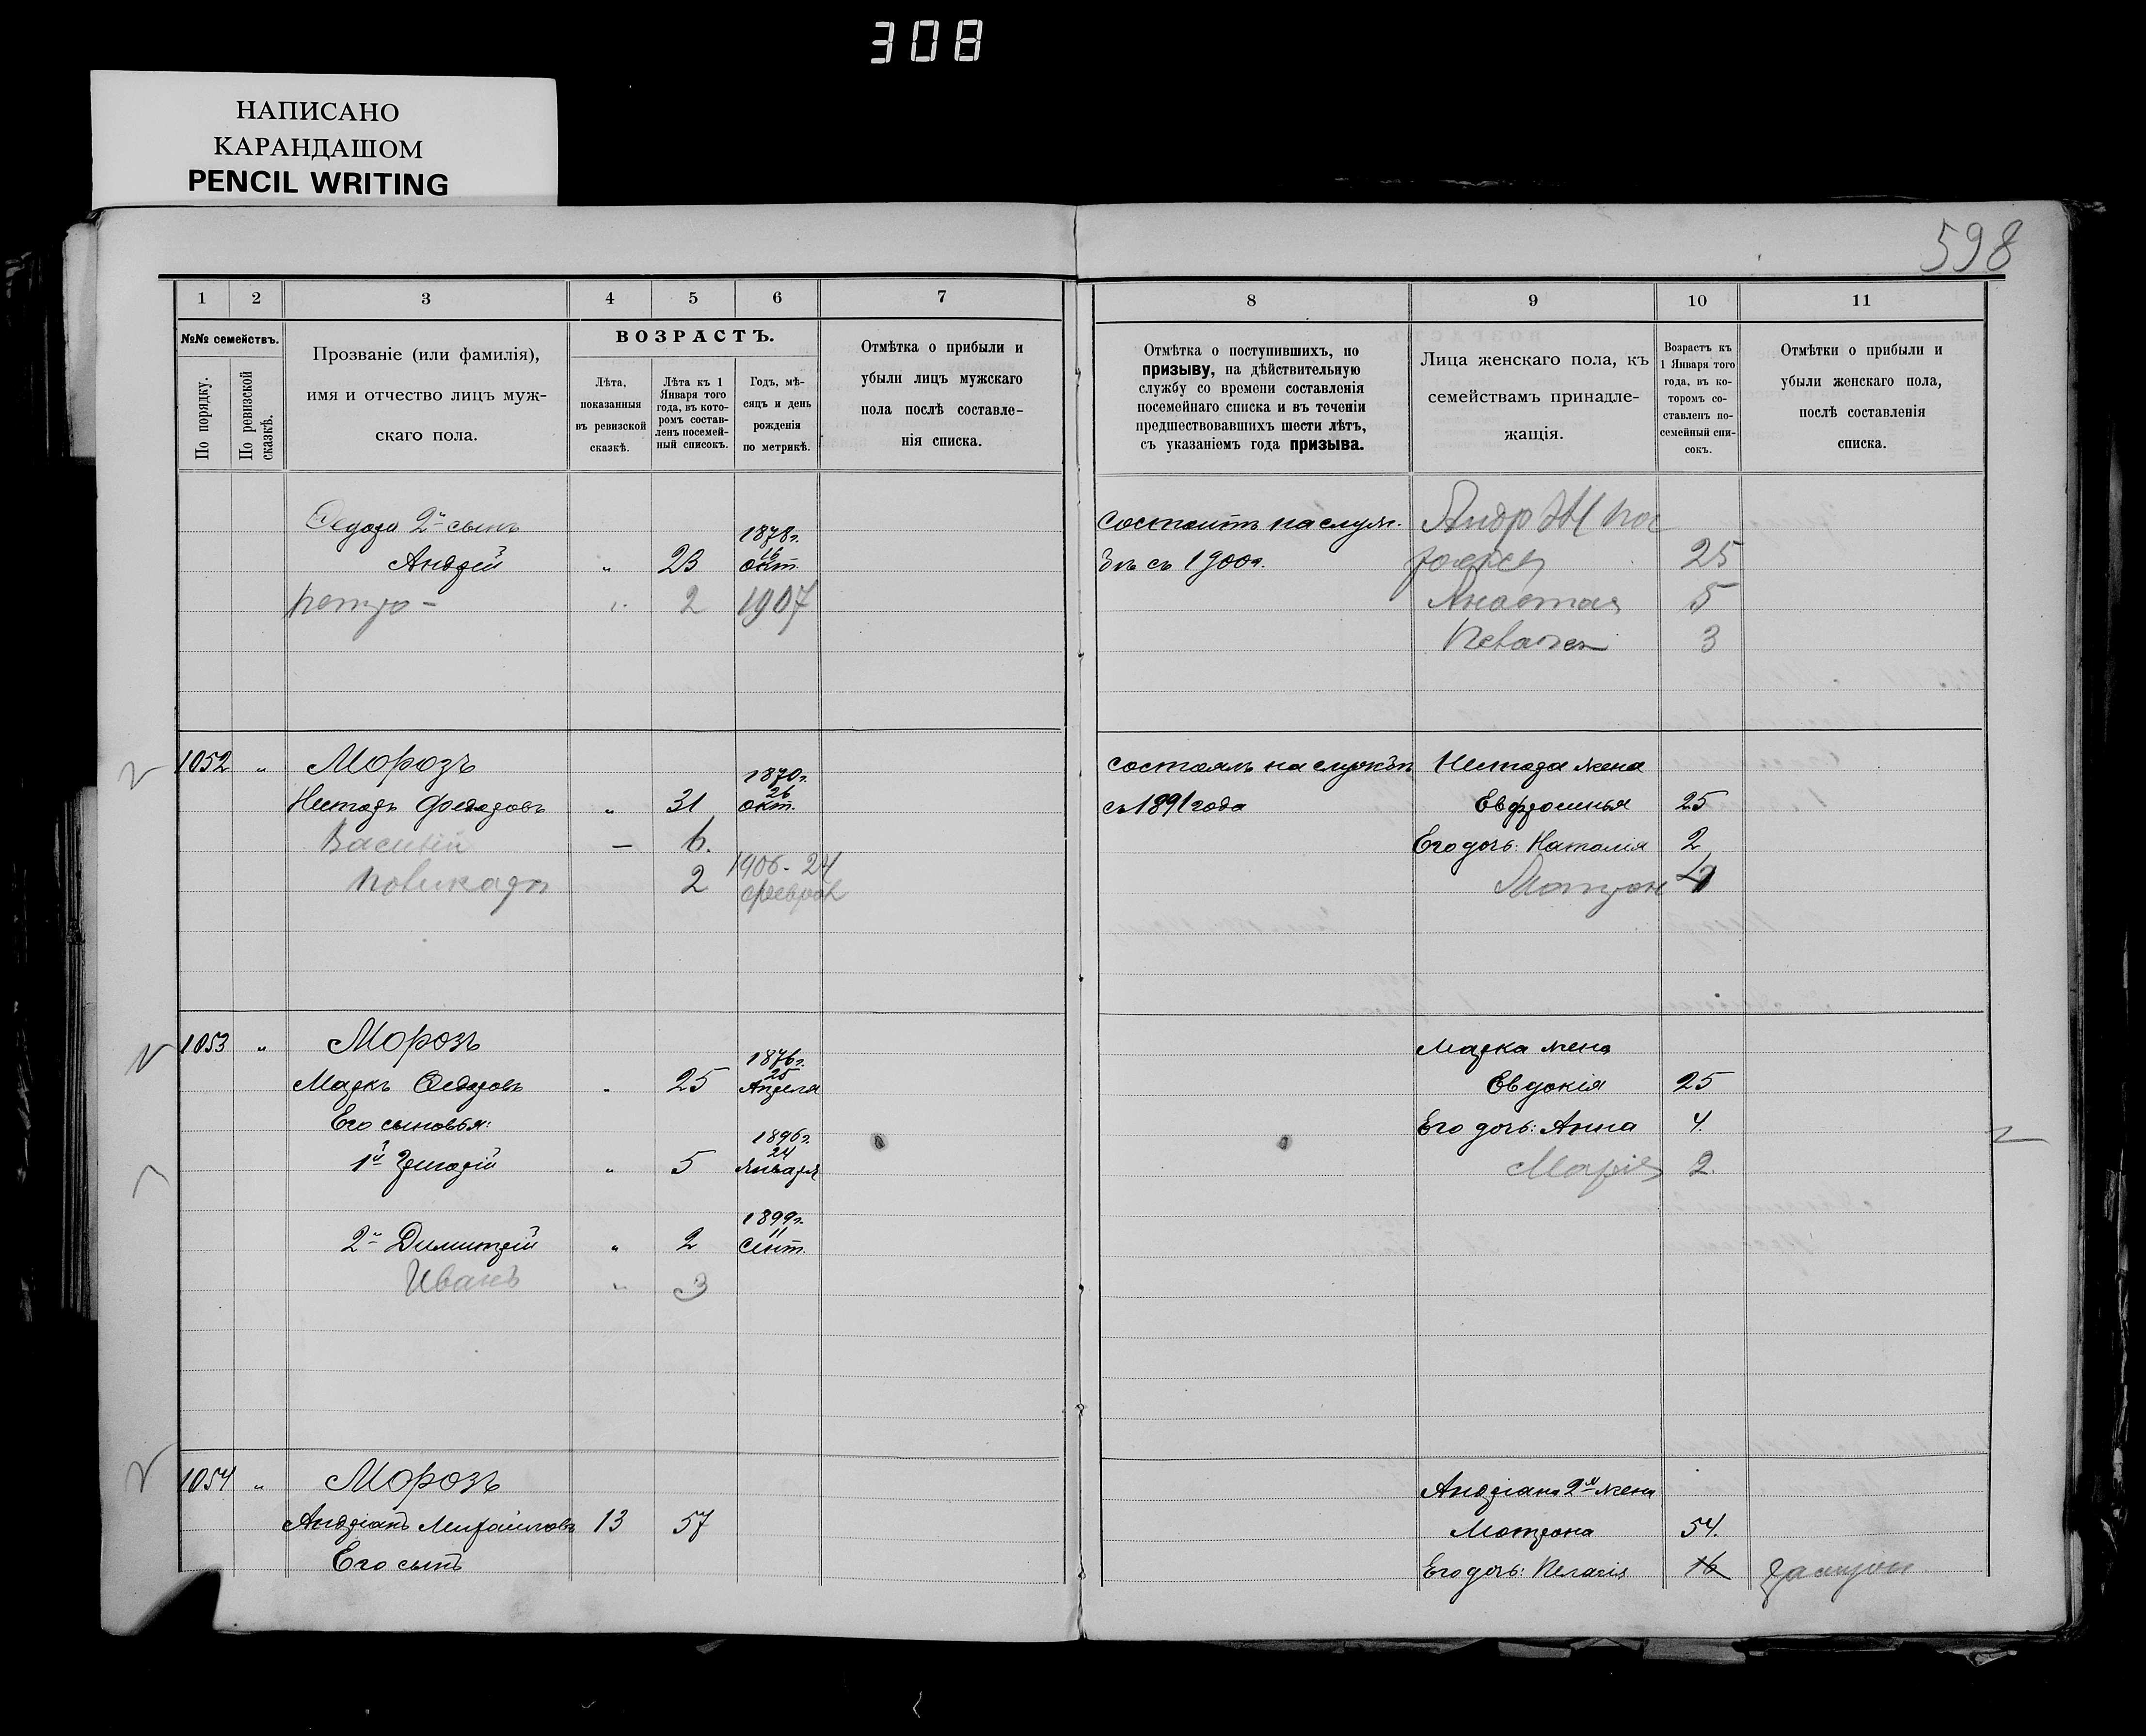 308
НАПИСАНО
КАРАНДАШОМ
PENCIL WRITING
598
1 2 3 4 5 6 7
№№ семействъ.
По порядку.
По ревизской сказкѣ.
Прозваніе (или фамилія),
имя и отчество лицъ муж-
скаго пола.
ВОЗРАСТЪ.
Лѣта,
показанныя
въ ревизской
сказкѣ.
Лѣта къ 1
Января того
года, въ кото-
ромъ состав-
ленъ посемей-
ный списокъ.
Годъ, мѣ-
сяцъ и день
рожденія
по метрикѣ.
Отмѣтка о прибыли и
убыли лицъ мужскаго
пола послѣ составле-
нія списка.
8 9 10 11
Отмѣтка о поступившихъ, по
призыву, на дѣйствительную
службу со времени составленія
посемейнаго списка и въ теченіи
предшествовавшихъ шести лѣтъ,
съ указаніемъ года призыва.
Лица женскаго пола, къ
семействамъ принадле-
жащія.
Возрастъ къ
1 Января того
года, въ ко-
торомъ со-
ставленъ по-
семейный спи-
сокъ.
Отмѣтки о прибыли и
убыли женскаго пола,
послѣ составленія
списка.
Ѳедора 2й сынъ
1878г.
16
Андрей " 23 окт.
Петро - " 2 1907
состоитъ на служ-
бѣ съ 1900г.
25
Анастас 5
3
1052 " Морозъ
1870г.
26
Несторъ Ѳедоровъ " 31 окт.
Василій — 6.
2 1906 - 24
феврал
состоялъ на службѣ
съ 1891 года
Нестора жена
Евфросинья 25
Его дочь: Наталія 2
Мотрон
1053 " Морозъ
1876г.
25
Маркъ Ѳедоровъ " 25 Апреля
Его сыновья:
1896г.
24
1й Григорій " 5 января
1899г.
11
2й Димитрій " 2 Сент.
Иванъ " 3
Марка жена
Евдокія 25
Его дочь: Анна 4.
Марія 2.
1054 " Морозъ
Андріанъ Михайловъ 13 57
Его сынъ
Андріана 2я жена
Мотрона 54.
Его дочь: Пелагія 16 замужем